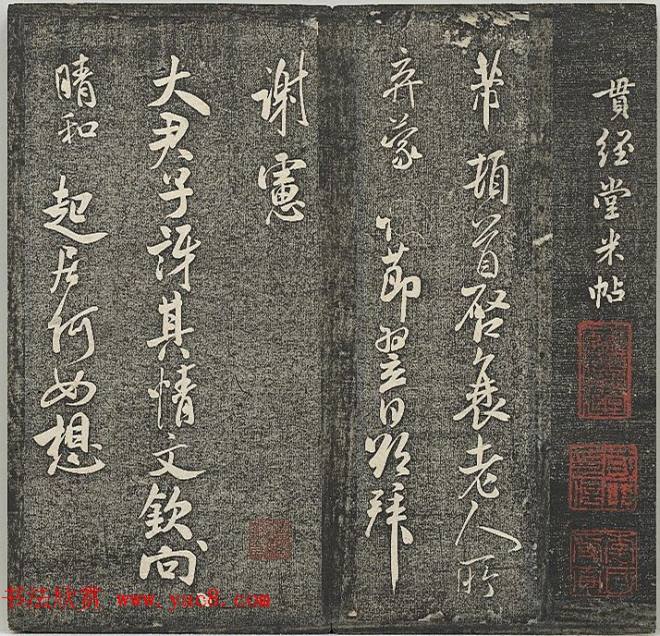 貫經堂米帖
芾頓首啓衰老人所
弃蒙節翌日拜
謝憲
大君子訝其情文欽向
晴和起居何如想
书法欣赏 www.yac8.com